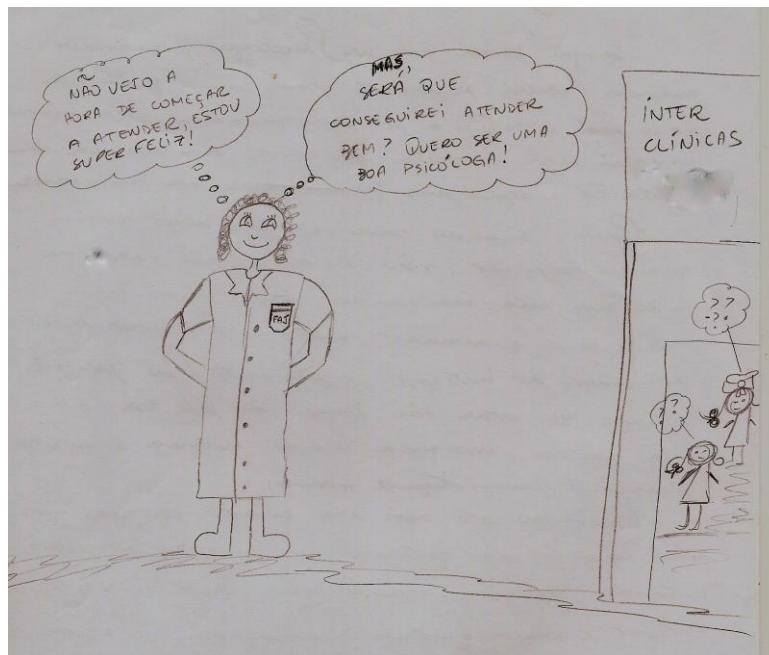 NÃO VEJO A
HORA DE COMEÇAR
A ATENDER, ESTOU
SUPER FELIZ!
MAS,
SERÁ QUE
CONSEGUIREI ATENDER
BEM? QUERO SER UMA
BOA PSICÓLOGA!
INTER
CLÍNICAS
FAJ
??
??
??